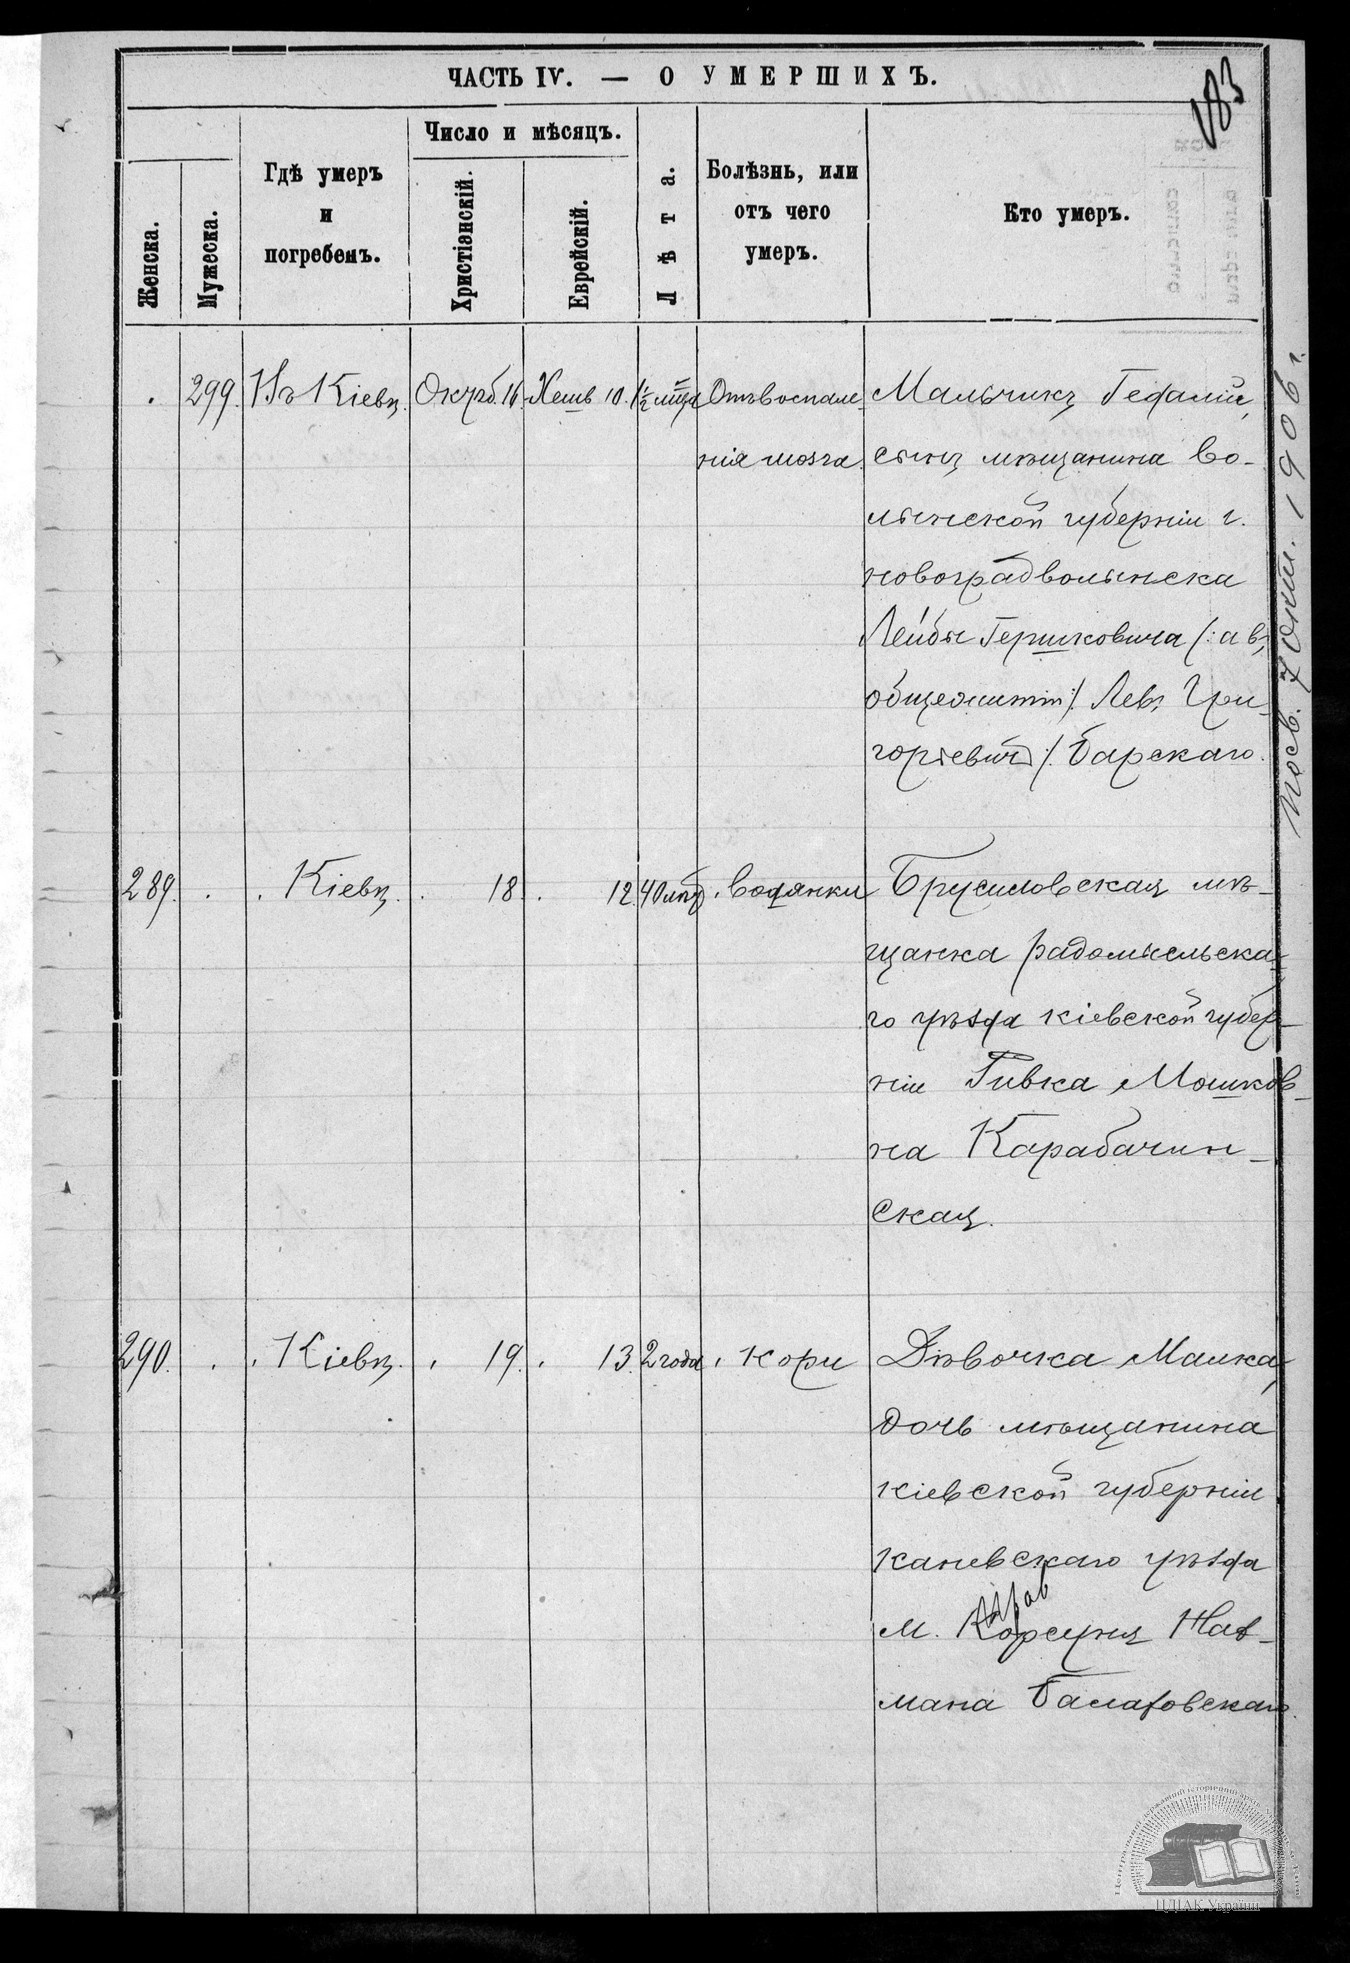 ЧАСТЬ IV. — О УМЕРШИХЪ.
183
Женска.
Мужеска.
Гдѣ умеръ
и
погребенъ.
Число и мѣсяцъ.
Христіанскій.
Еврейскій.
Лѣта.
Болѣзнь, или
отъ чего
умеръ.
Кто умеръ.
299. Въ Кіевѣ. Октяб. 16. Хешв 10. 1½ Отъ воспале-
нія мозга.
Мальчикъ Гедалій,
сынъ мѣщанина во-
лынской губерніи г.
новоградволынска
Лейбы Гершковича /: а въ
общежитіи :/ Левъ Гри-
горьевичъ /: Барскаго.
289. Кіевѣ. 18. 12. 40 лѣтъ водянки
Брусиловская мѣ-
щанка радомысльска-
го уѣзда кіевской губер-
ніи Ривка Мошков-
на Карабачин-
ская.
290. Кіевѣ. 19. 13. 2 года кори
Дѣвочка Малка,
дочь мѣщанина
кіевской губерніи
каневскаго уѣзда
м. Корсуня
мана
7 окт. 1906 г.
Центральний державний історичний архів України
ЦДІАК України